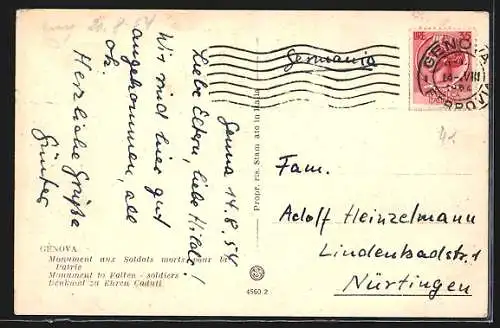 Genua 14.8.54
Liebe Eltern, liebe Hilde!
Wir sind hier gut
angekommen, alle
ok.
Herzliche Grüße
Günter
Germania
GENOVA
14-VIII
FERROVIA
Propr. ris. Stam ato in Italia
Fam.
Adolf Heinzelmann
Lindenbadstr.
Nürtingen
GENOVA
Monument aux Soldats morts pour la
Patrie
Monument to Fallen - soldiers
Denkmal zu Ehren Caduti
4560 2